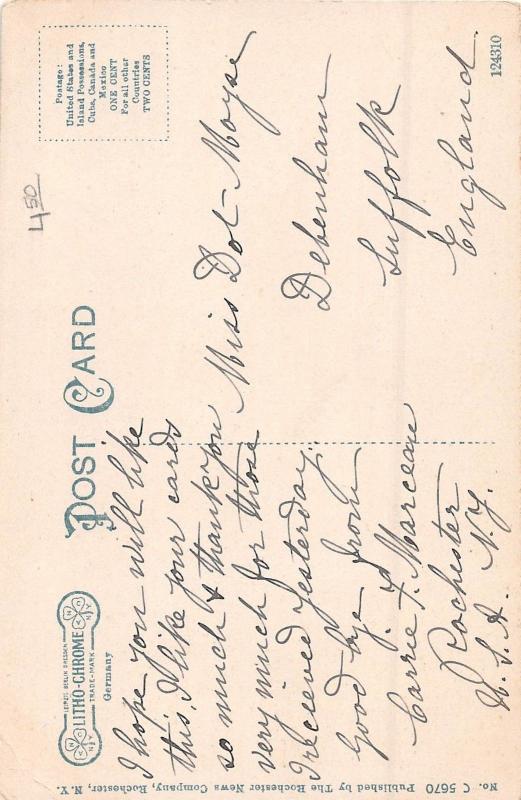 POST CARD
LEIPZIG BERLIN DRESDEN
LITHO-CHROME
TRADE-MARK
Germany
Postage:
United States and
Island Possessions,
Cuba, Canada and
Mexico
ONE CENT
For all other
Countries
TWO CENTS
4.50
I hope you will like
this. I like your cards
so much & thank you
very much for those
I recieved yesterday.
Good bye from
Carrie F. Marceau
Rochester
U.S.A. N.Y.
Miss Dot Moyse
Debenham
Suffolk
England
No. C 5670 Published by The Rochester News Company, Rochester, N.Y.
124310